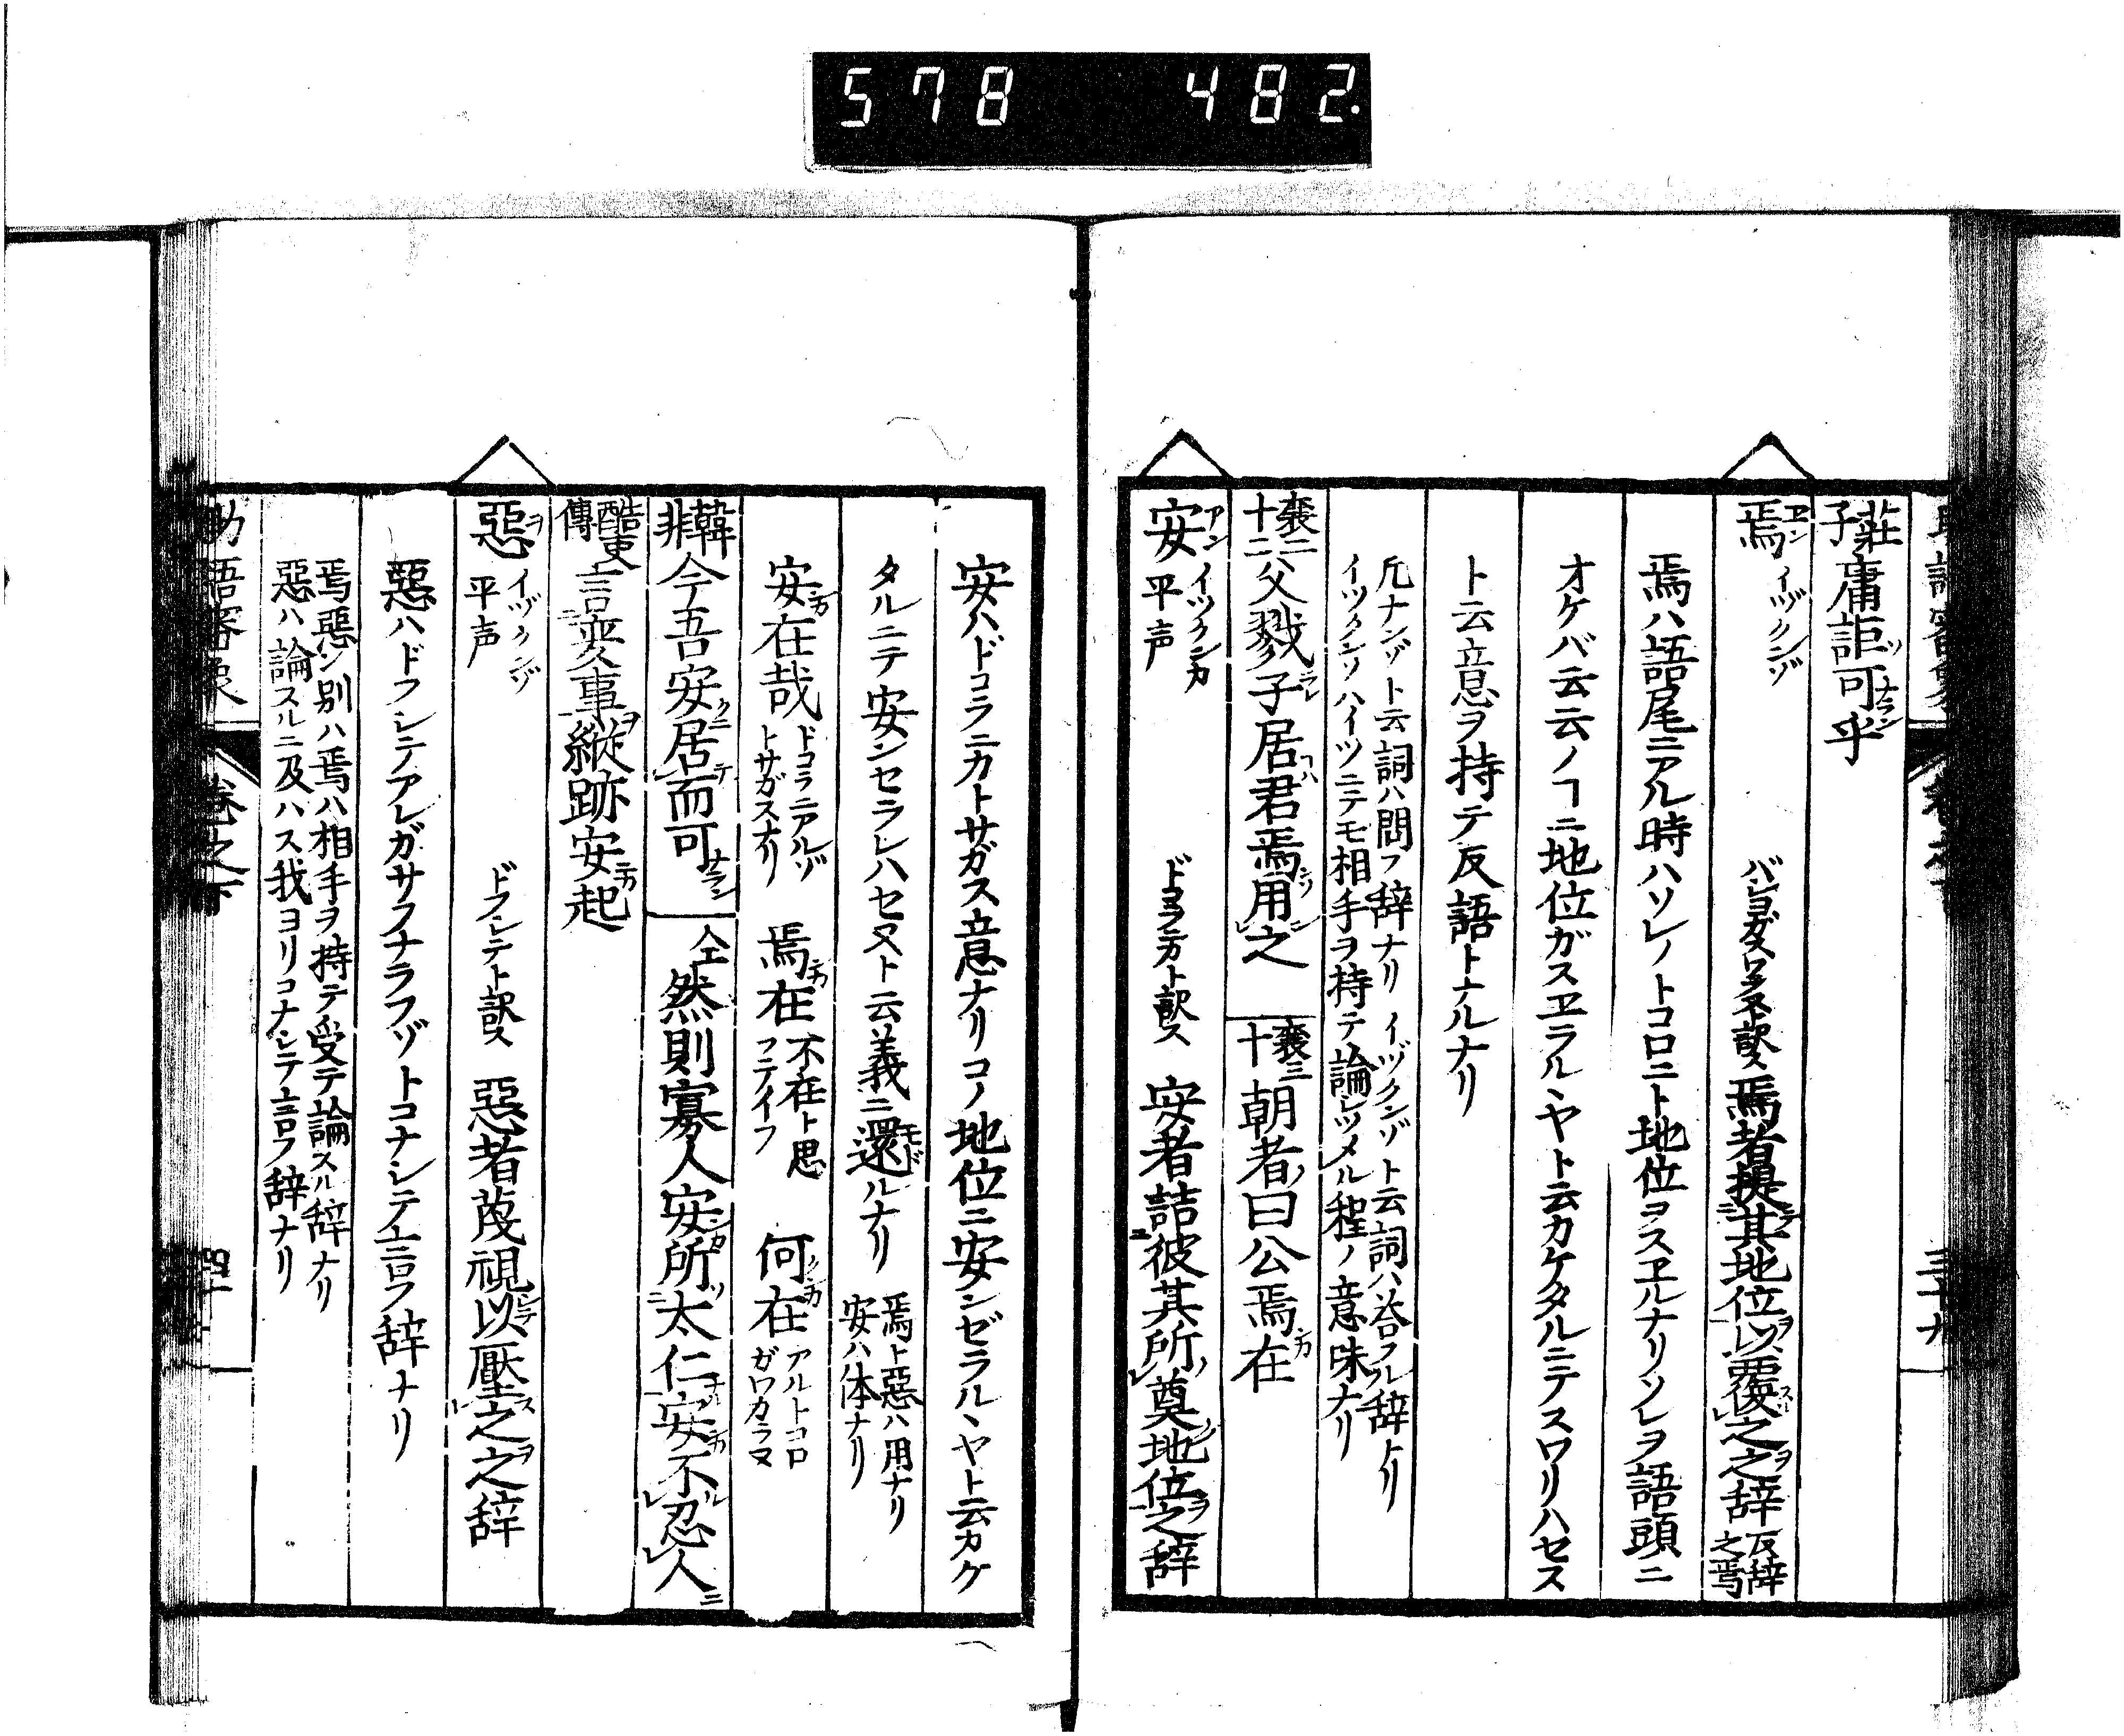 578 482.
莊子 庸詎可乎
焉 エン イヅクンゾ 焉者提其地位以覆之之辞 反辞之焉
焉ハ語尾ニアル時ハソレノトコロニト地位ヲスヱルナリソレヲ語頭ニ
オケバ云云ノヿニ地位ガスヱラルヽヤト云カケタルニテスワリハセス
ト云意ヲ持テ反語トナルナリ
凡ナンゾト云詞ハ問フ辞ナリイヅクンゾト云詞ハ答フル辞ナリ
イヅクンゾハイツニテモ相手ヲ持テ論シツメル程ノ意味ナリ
襄二十二 父戮子居君焉用之 襄三十 朝者曰公焉在
安 アン イヅクンカ 平声 ドコラニカト訳ス 安者詰彼其所奠地位之辞
安ハドコラニカトサガス意ナリコノ地位ニ安ンゼラルヽヤト云カケ
タルニテ安ンセラレハセヌト云義ニ還ルナリ 焉ト惡ハ用ナリ安ハ体ナリ
安在哉 ドコラニアルゾトサガスナリ 焉在 不在ト思フテイフ 何在 アルトコロガワカラヌ
韓非 今吾安居而可 仝 然則寡人安所太仁安不忍人
酷吏傳 言变事縱跡安起
惡 ヲ イヅクンゾ 平声 ドフシテト訳ス 惡者蔑視以壓之之辞
惡ハドフシテアレガサフナラフゾトコナシテ言フ辞ナリ
焉惡ノ別ハ焉ハ相手ヲ持テ受テ論スル辞ナリ
惡ハ論スルニ及ハス我ヨリコナシテ言フ辞ナリ
助語審象 卷之下